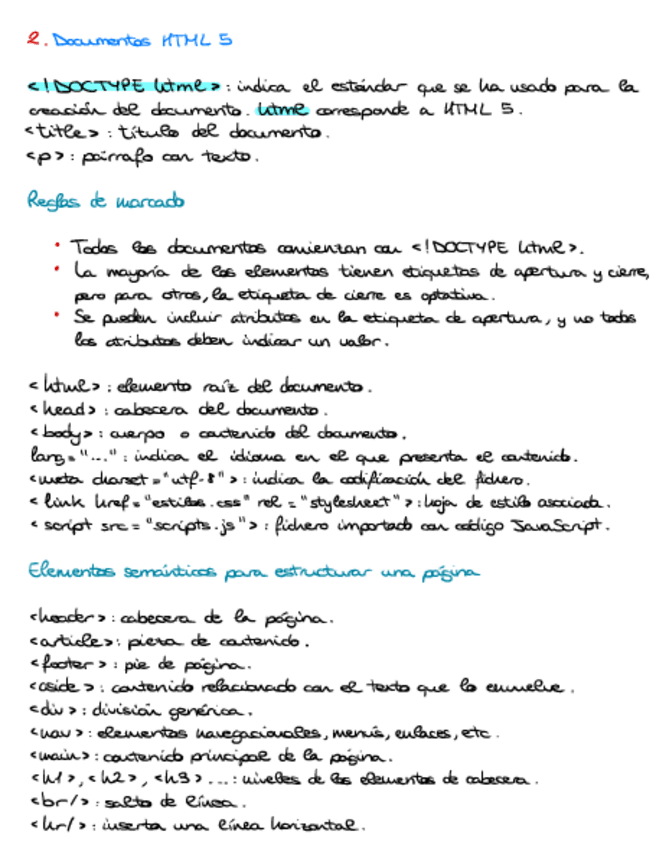 2. Documentos HTML 5
<!DOCTYPE html>: indica el estándar que se ha usado para la
creación del documento. html corresponde a HTML 5.
<title>: título del documento.
<p>: párrafo con texto.
Reglas de marcado
• Todos los documentos comienzan con <!DOCTYPE html>.
• La mayoría de los elementos tienen etiquetas de apertura y cierre,
pero para otros, la etiqueta de cierre es optativa.
• Se pueden incluir atributos en la etiqueta de apertura, y no todos
los atributos deben indicar un valor.
<html>: elemento raíz del documento.
<head>: cabecera del documento.
<body>: cuerpo o contenido del documento.
lang="...": indica el idioma en el que presenta el contenido.
<meta charset="utf-8">: indica la codificación del fichero.
<link href="estilos.css" rel="stylesheet">: hoja de estilo asociada.
<script src="scripts.js">: fichero importado con código JavaScript.
Elementos semánticos para estructurar una página
<header>: cabecera de la página.
<article>: pieza de contenido.
<footer>: pie de página.
<aside>: contenido relacionado con el texto que lo envuelve.
<div>: división genérica.
<nav>: elementos navegacionales, menús, enlaces, etc.
<main>: contenido principal de la página.
<h1>, <h2>, <h3>...: niveles de los elementos de cabecera.
<br/>: salto de línea.
<hr/>: inserta una línea horizontal.